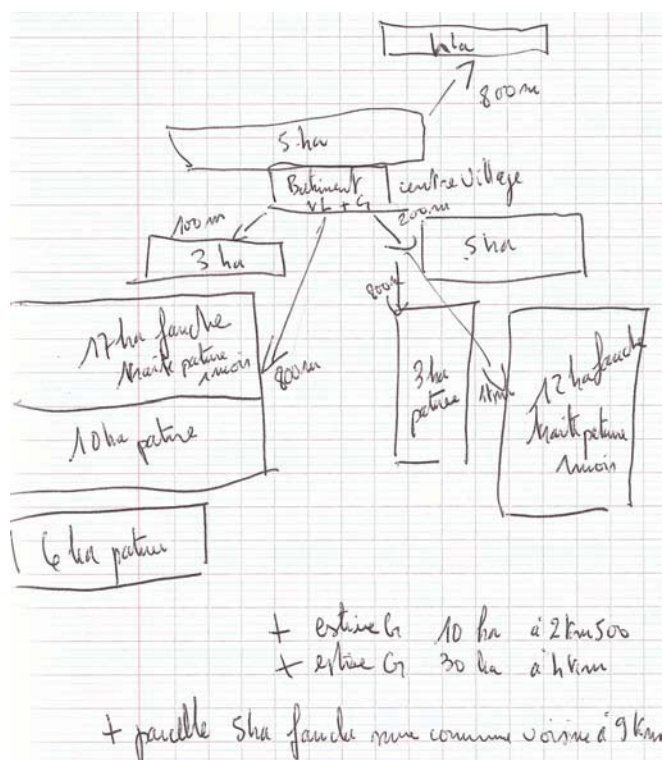 4 ha
800m
5 ha
Batiment
VL + G
centre village
100m
200m
3 ha
5 ha
800m
17 ha fauche
traite pature
1 mois
800m
3 ha
pature
1km
12 ha fauche
traite pature
1 mois
10 ha pature
6 ha pature
+ estive G 10 ha à 2km500
+ estive G 30 ha à 4km
+ parcelle 5ha fauche sur commune voisine à 9km